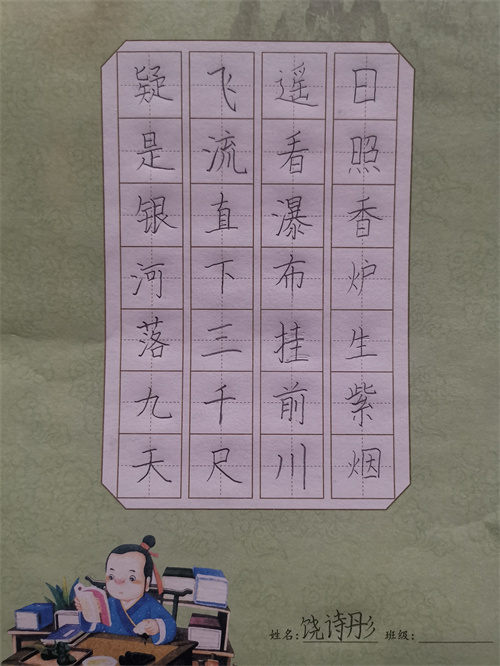 日照香炉生紫烟
遥看瀑布挂前川
飞流直下三千尺
疑是银河落九天
姓名:饶诗彤 班级: